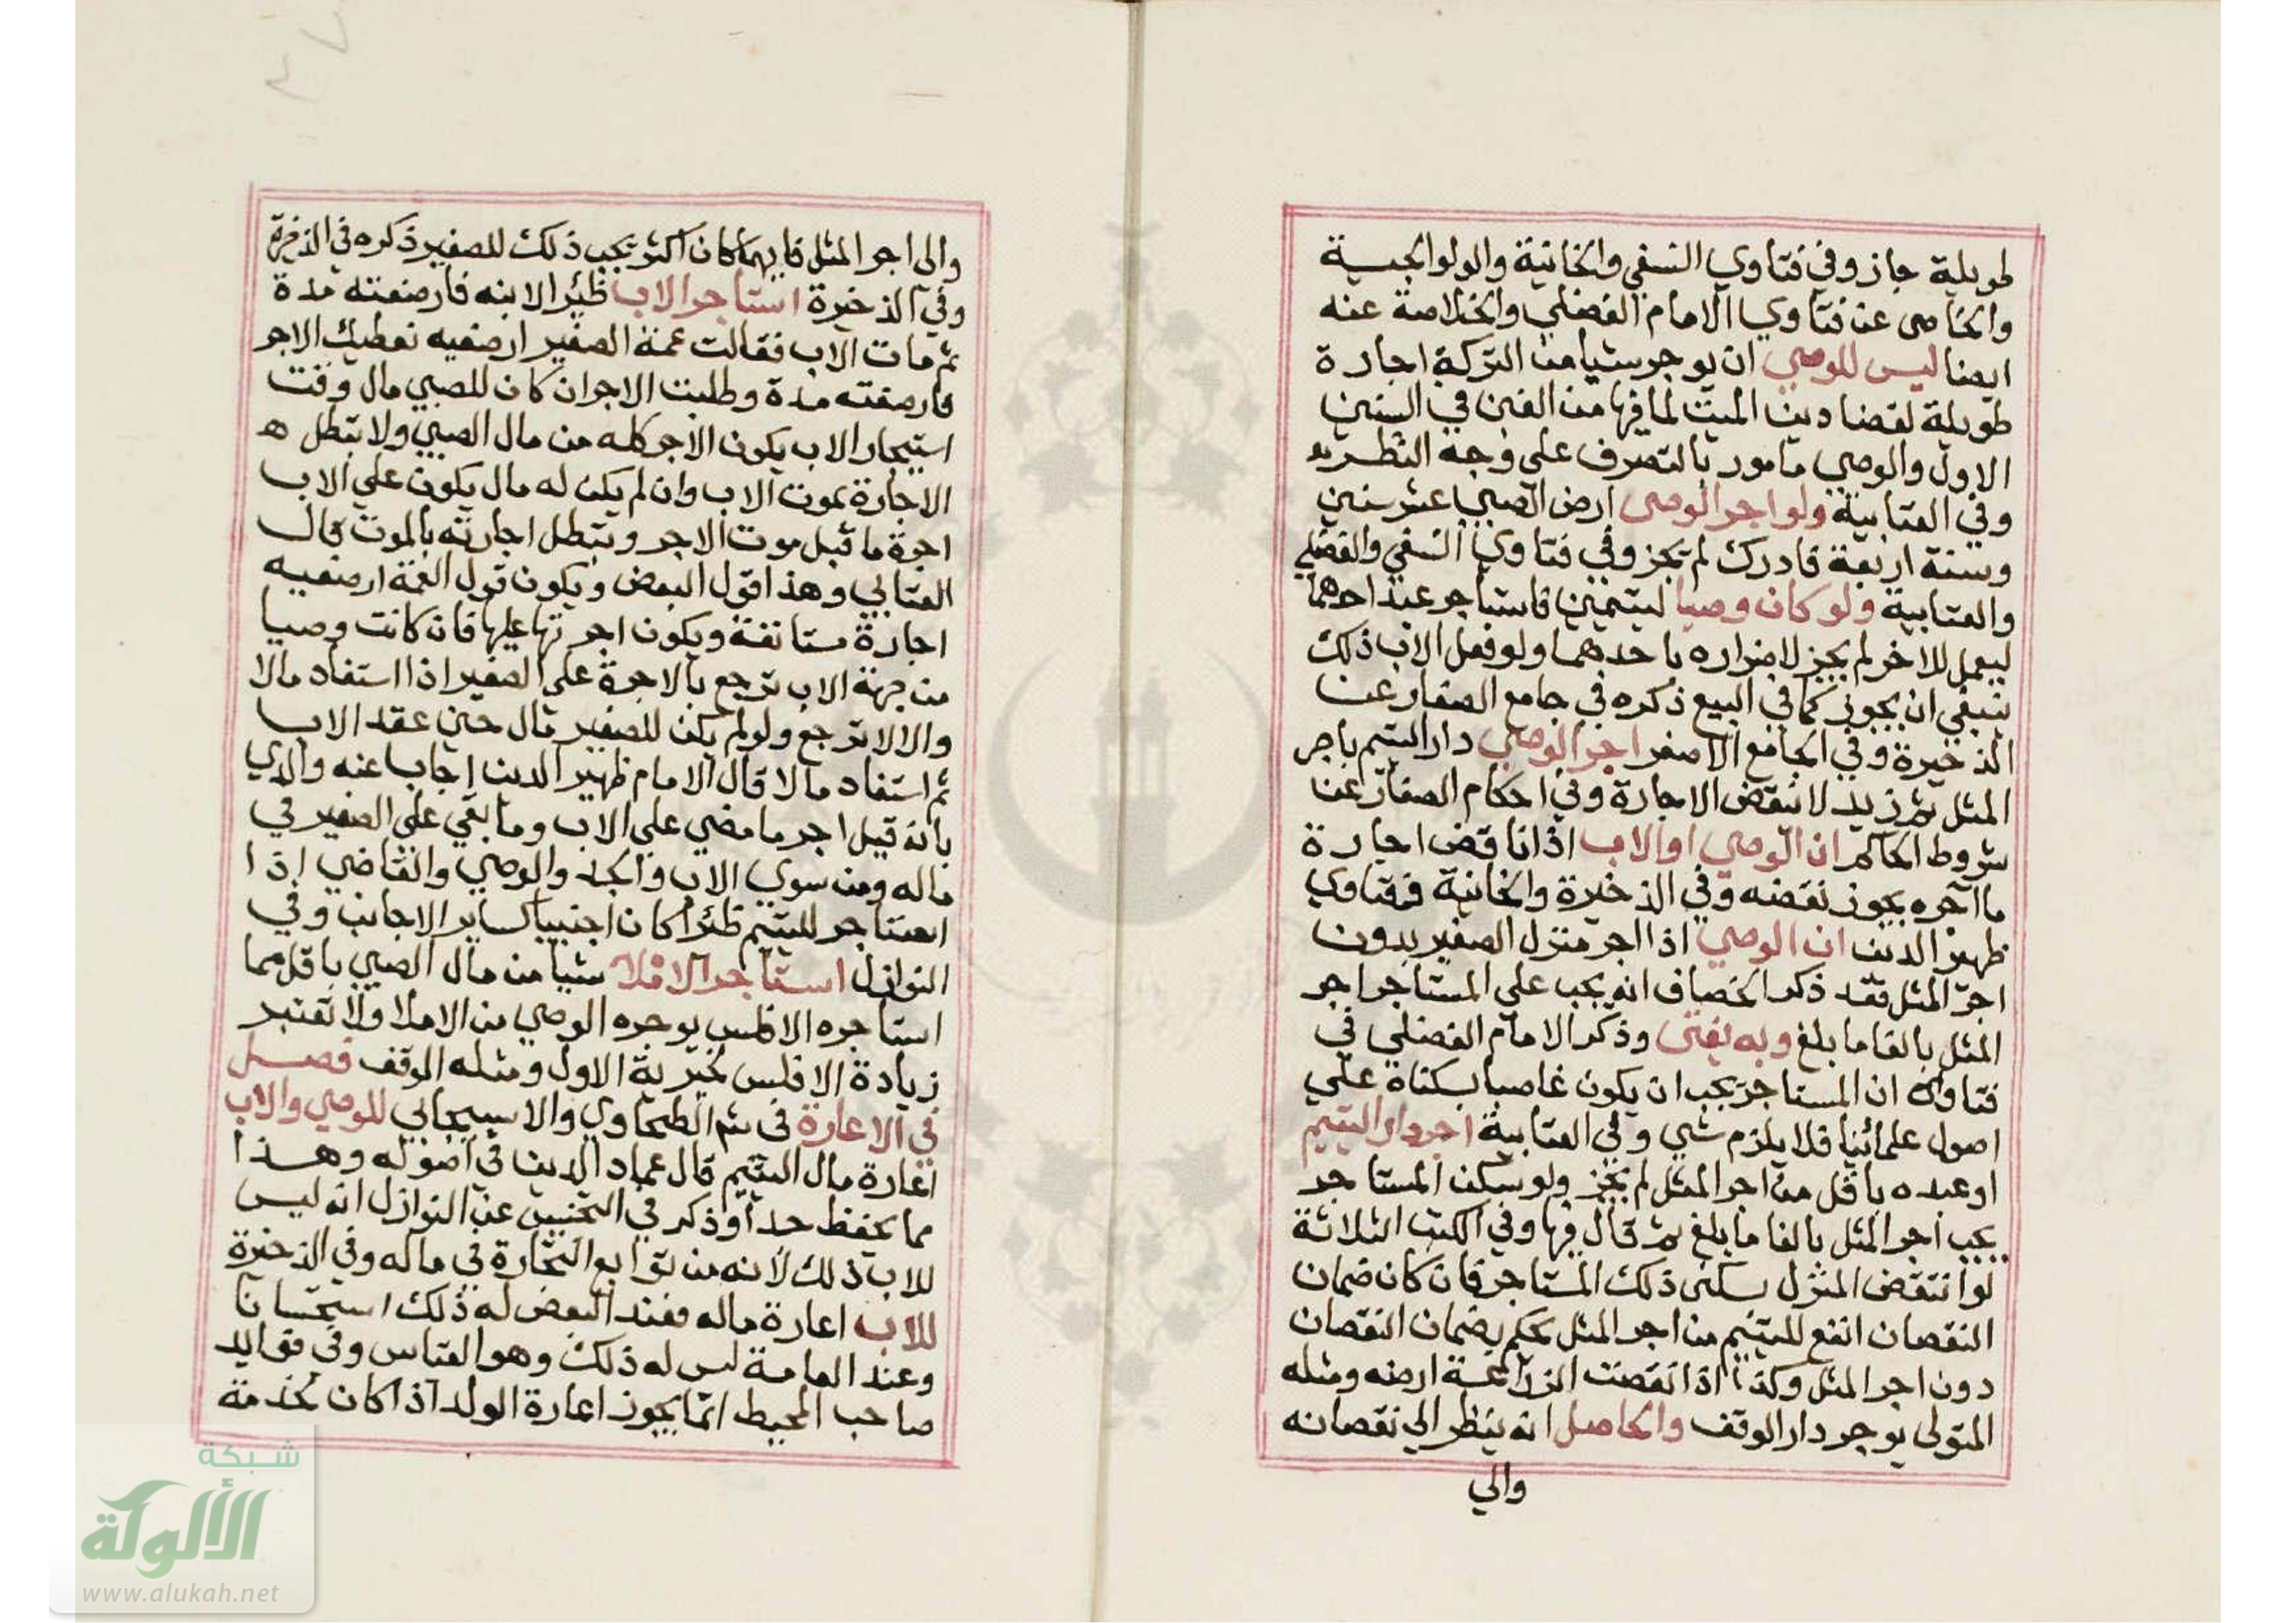 طويلة جاز وفي فتاوي النسفي والخانية والولوالجية
والخاصى عن فتاوي الامام الفضلي والخلاصة عنه
ايضا ليس للوصي ان يوجر شيا من التركة اجارة
طويلة لقضا دين الميت لما فيها من الغبن في السنين
الاول والوصي مامور بالتصرف على وجه النظر
وفي العتابية ولو اجر الوصى ارض الصبي عشر سنين
وسنة اربعة فادرك لم تجز وفي فتاوي النسفي والفضلي
والعتابية ولو كان وصيا ليتيمين فاستاجر عبد احدهما
ليعمل للاخر لم يجز لاضراره باحدهما ولو فعل الاب ذلك
ينبغي ان يجوز كما في البيع ذكره في جامع الصغار عن
الذخيرة وفي الجامع الاصغر اجر الوصي دار اليتيم باجر
المثل ثم زيد لا تنقض الاجارة وفي احكام الصغار عن
شروط الحاكم ان الوصي او الاب اذا ناقض اجارة
ما اجره يجوز نقضه وفي الذخيرة والخانية ففتاوي
ظهير الدين ان الوصي اذا اجر منزل الصغير بدون
اجر المثل فقد ذكر الخصاف انه يجب علي المستاجر اجر
المثل بالغا ما بلغ وبه يفتى وذكر الامام الفضلي في
فتاواه ان المستاجر يجب ان يكون غاصبا بسكناه علي
اصول علمائنا فلا يلزم شي وفي العتابية اجر دار اليتيم
او عبده باقل من اجر المثل لم يجز ولو سكن المستاجر
يجب اجر المثل بالغا ما بلغ ثم قال فيها وفي الكتب الثلاثة
لو انتقض المنزل بسكنى ذلك المستاجر فان كان ضمان
النقصان انفع لليتيم من اجر المثل يحكم بضمان النقصان
دون اجر المثل وكذا اذا انقصت الزراعة ارضه ومثله
المتولى يوجر دار الوقف والحاصل انه ينظر الي نقصانه
والي
والى اجر المثل فايهما كان اكثر يجب ذلك للصغير ذكره في الذخيرة
وفي الذخيرة استاجر الاب ظئرا لابنه فارضعته مدة
ثم مات الاب فقالت عمة الصغير ارضعيه نعطيك الاجر
فارضعته مدة وطلبت الاجر ان كان للصبي مال وقت
استيجار الاب يكون الاجر كله من مال الصبي ولا تبطل
الاجارة بموت الاب وان لم يكن له مال يكون علي الاب
اجرة ما قبل موت الاجر وتبطل اجارته بالموت قال
العتابي وهذا قول البعض ويكون قول العمة ارضعيه
اجارة مستانفة ويكون اجرتها عليها فان كانت وصيا
من جهة الاب ترجع بالاجرة على الصغير اذا استفاد مالا
والا لا ترجع ولو لم يكن للصغير مال حين عقد الاب
ثم استفاد مالا قال الامام ظهير الدين اجاب عنه والدي
بانه قيل اجر ما مضي على الاب وما بقي على الصغير في
ماله ومن سوي الاب والجد والوصي والقاضي اذا
استاجر لليتيم ظئرا كان اجنبيا كساير الاجانب وفي
النوازل استاجر الاملا شيا من مال الصبي باقل مما
استاجره الافلس يوجره الوصي من الاملا ولا تعتبر
زيادة الافلس لخيرية الاول ومثله الوقف فصل
في الاعارة في شم الطحاوي والاسبيجابي للوصي والاب
اعارة مال اليتيم قال عماد الدين في اصوله وهذا
مما يحفظ حدا وذكر في التجنيس عن النوازل انه ليس
للاب ذلك لانه من توابع التجارة في ماله وفي الذخيرة
للاب اعارة ماله فعند البعض له ذلك استحسانا
وعند العامة ليس له ذلك وهو القياس وفي فوايد
صاحب المحيط انما يجوز اعارة الولد اذا كان لخدمة
شبكة
الألوكة
www.alukah.net